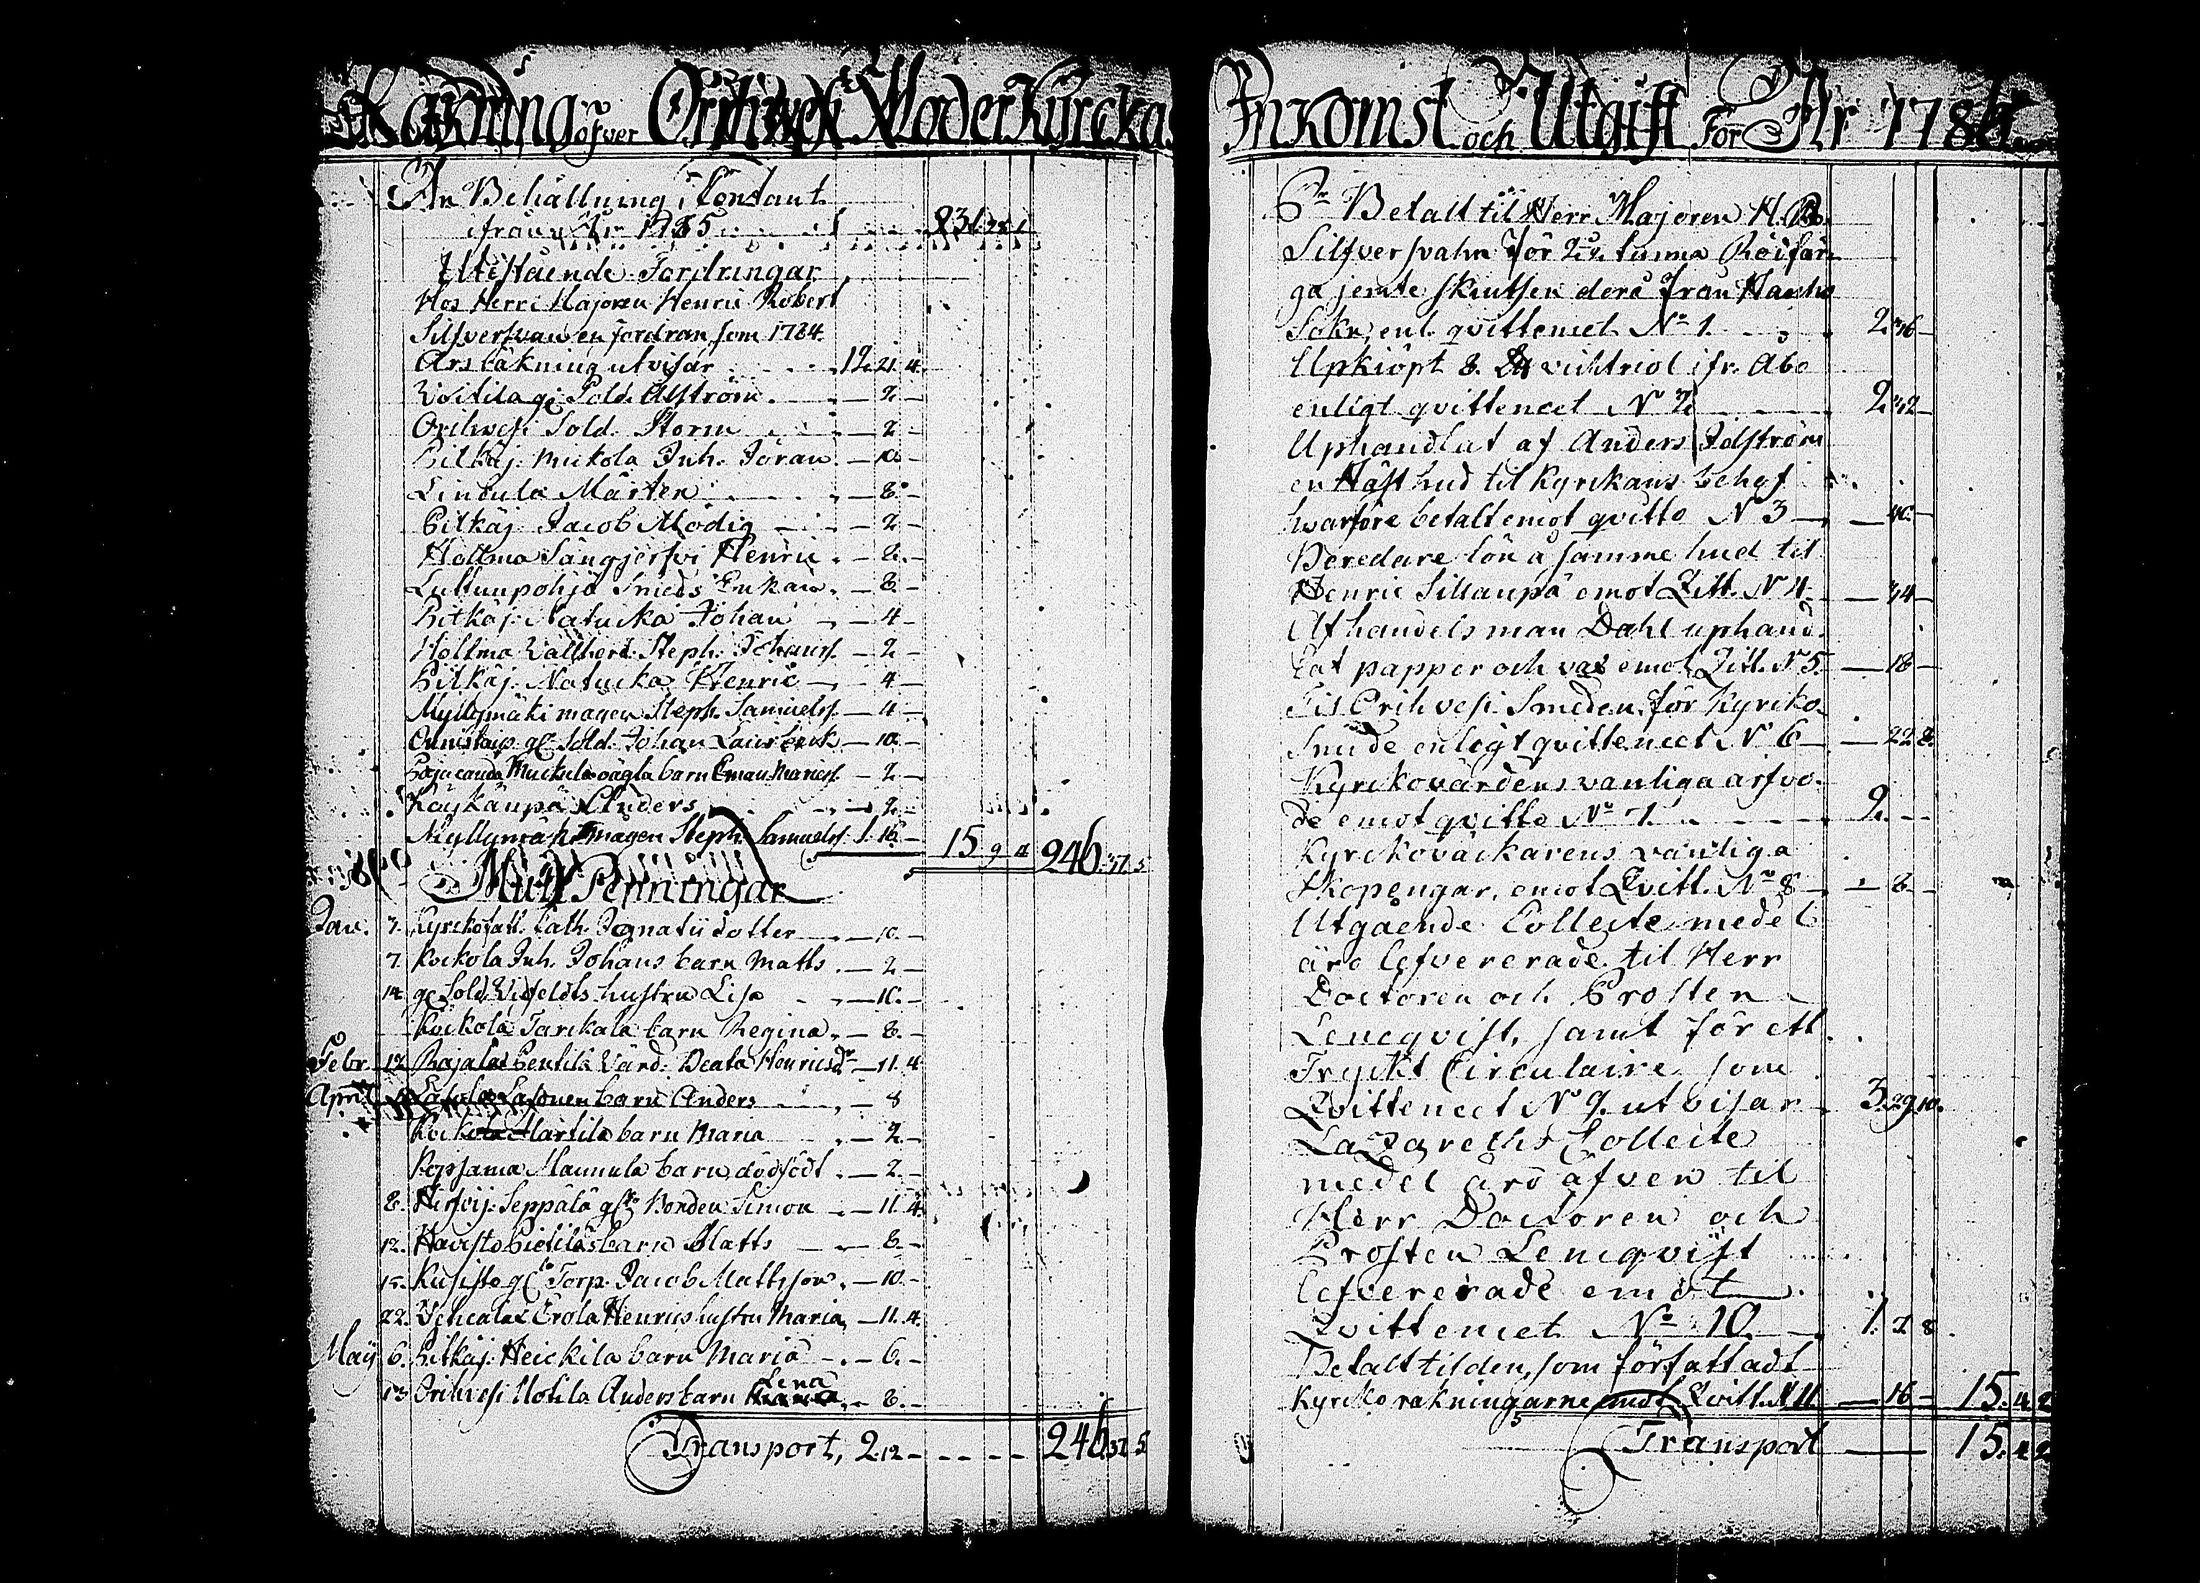 Räkning öfver Orihwesi Moder Kyrckas
An Behållning i Contant
ifrån År 1785 231. 28. 1
Utestående Fordringar
Hos Herr Majoren Henric Robert
Silfversvan en fordran som 1784
Års Räkning utvisar 12. 21. 4.
Voitila gl. Sold. Alström — 2 —
Orihvesi Sold. Storm — 2 —
Pitkäj. Muckola Inh. Jöran — 10. —
Lintula Mårten — 8. —
Pitkäj. Jacob Modig — 2 —
Holtma Sångjerfvi Henric — 2. —
Luttunpohja Smeds Enkan — 8. —
Pitkäj. Natucka Johan — 4 —
Holtma Vallbert Steph. Johanss. — 2 —
Pitkäj. Natucka Henric — 4 —
Myllymäki magen Steph. Samuelss. — 4 —
Onnistaip. gl. Sold. Johan — 10. —
Muckula oägta barn Eman. — 2 —
Käykänpä Anders — 2 —
Myllymäki magen Steph. Samuelss. 1. 16. — 15 9 4 246. 37. 5
Mull Penningar
Jan. 7. Kyrckofatt. Cath. Ignatii dotter — 10 —
7. Kockola Inh. Johans barn Matts — 2 —
14. gl. Sold. hustru Lisa — 10. —
Kockola Tarckala barn Regina — 8. —
Febr. 12. Rajala Pentik Värd. Beata Henricsdr — 11. 4
April barn Anders — 8
Kockola Martila barn Maria — 2 —
Kopsama Mannula barn dödfödt — 2 —
8. Hirsij. Seppälä gl. Bonden Simon — 11. 4.
12. Havisto Pietiläs barn Matts — 8. —
15. Kusisto gl. Torp. Jacob Mattsson — 10. —
22. Vehcalax Erola Henrics hustru Maria — 11. 4.
May 6. Pitkäj. Heickila barn Maria — 6. —
13. Orihvesi Uotila Anders barn Lena — 8. —
Transport, 2. 12 — 246. 37. 5
Inkomst och Utgift För År 1786
Pr Betalt til Herr Majoren H. R.
Silfversvahn för 2 1/2 tunna Rödfär-
ga jemte skiutsen derå från Hauho
Sokn, enl. qvittencet No 1. 2. 36 —
Upkiöpt 8. vichtriol ifr. Åbo
enligt qvittencet No 2 2. 32 —
Uphandlat af Anders Idström
en Häst hud til Kyrckans behof
hvarföre betalt emot qvitto No 3 — 40. —
Beredare lön å samme hud til
Henric Sillanpä emot Qvitt. No 4. — 34 —
Af handelsman Dahl uphand-
lat papper och vax emot Qvitt. No 5. — 18 —
Til Orihvesi Smeden för Kyrcko-
Smide enligt qvittencet No 6 — 22 8.
Kyrckovärdens vanliga arfvo-
de emot qvitto No 7. 2. — —
Kyrckoväckarens vanliga
Skopengar, emot Qvitt. No 8 — 8 —
Utgående Collecte medel
äro lefvererade til Herr
Doctoren och Prosten
Lencqvist, samt för ett
Tryckt Circulaire som
Qvittencet No 9. utvisar 3. 29. 10.
Lazareths Collecte
medel äro äfven til
Herr Doctoren och
Prosten Lencqvist
lefvererade emot
Qvittencet No 10. 1. 7 8.
Betalt til den, som författadt
Kyrcko räkningarne emot Qvitt. N 11 — 16 — 15. 4 2
Transport — 15. 4 2